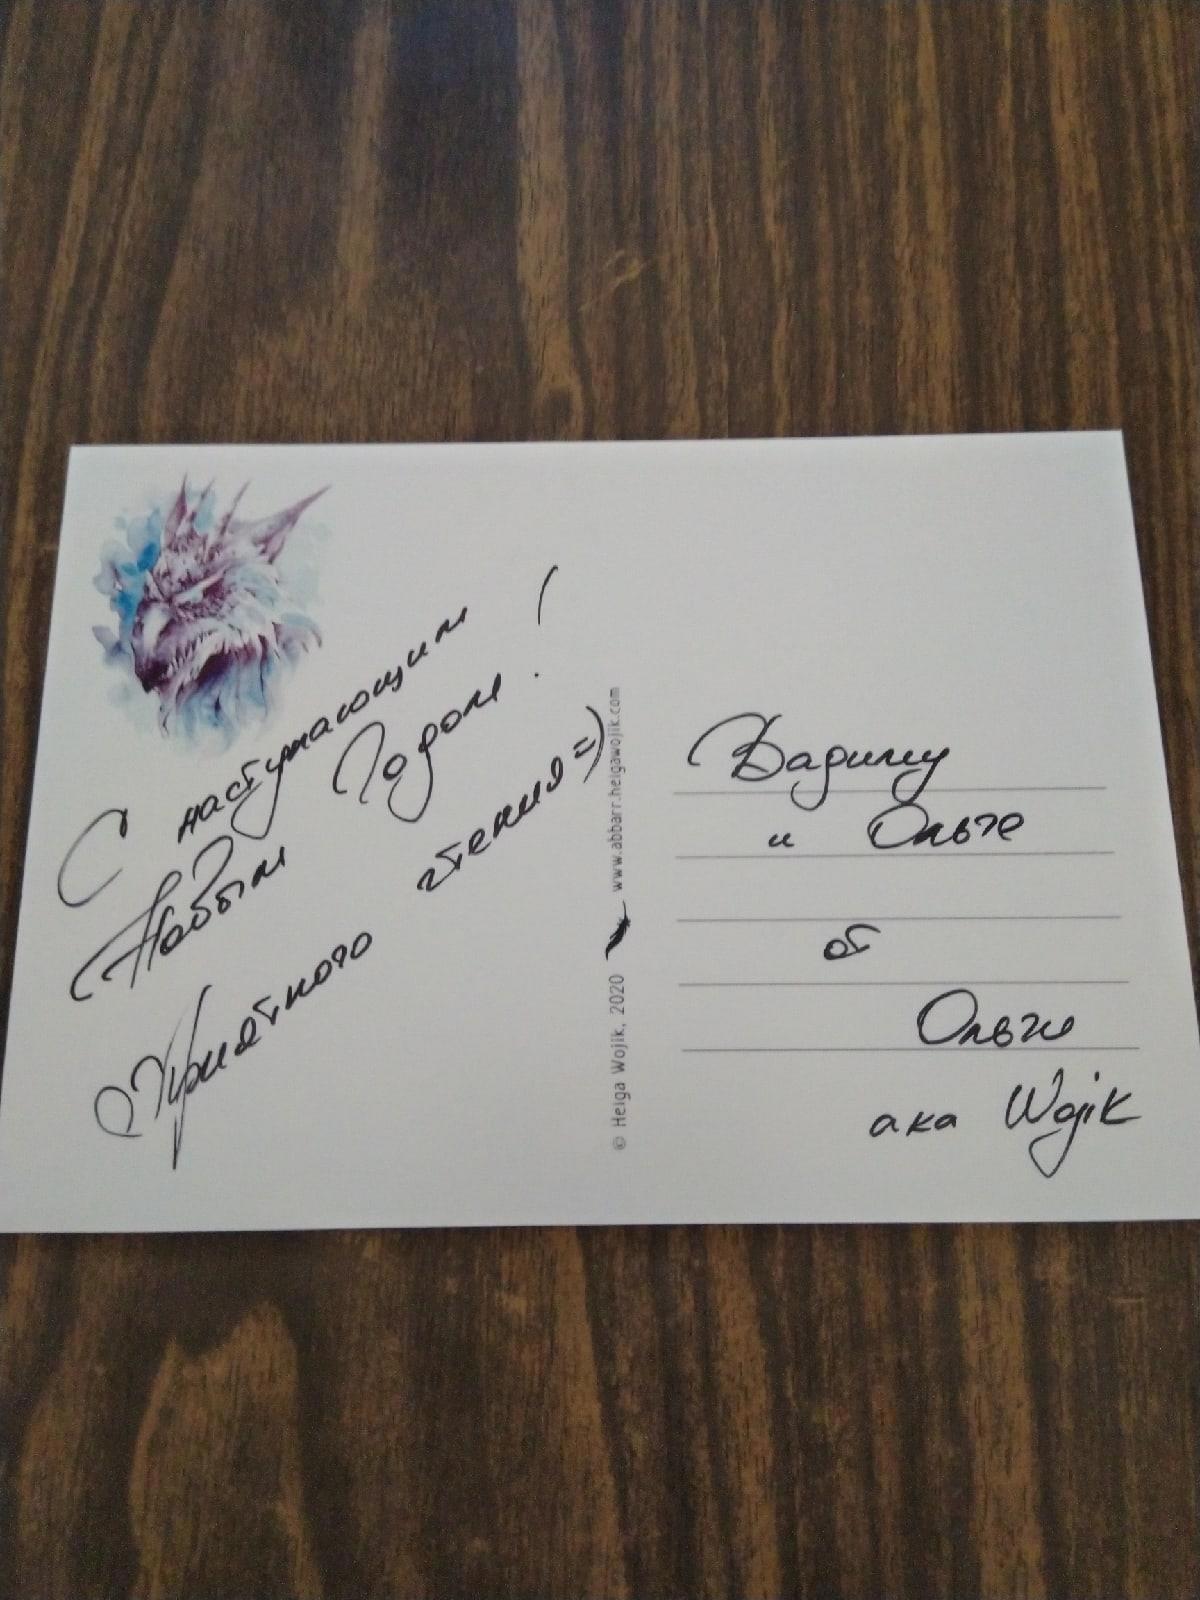 С наступающим
Новым Годом!
Приятного чтения =)
© Helga Wojik, 2020 www.abbarr.helgawojik.com
Вадиму
и Ольге
от
Ольги
aka Wojik